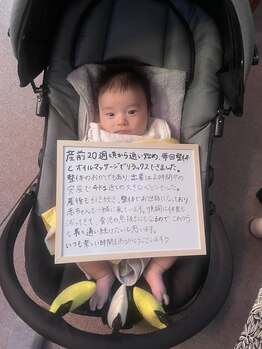 産前20週頃から通い始め、毎回整体
とオイルマッサージでリラックスできました。
整体のおかげもあり、出産は2時間半の
安産で4キロ近くの大きなベビーでした。
産後も引き続き整体でお世話になっており
赤ちゃんと一緒に来ています。快適に
できて、育児の息抜きにもなるので、これから
も長く通い続けたいと思います。
いつも楽しい時間をありがとうございます♡